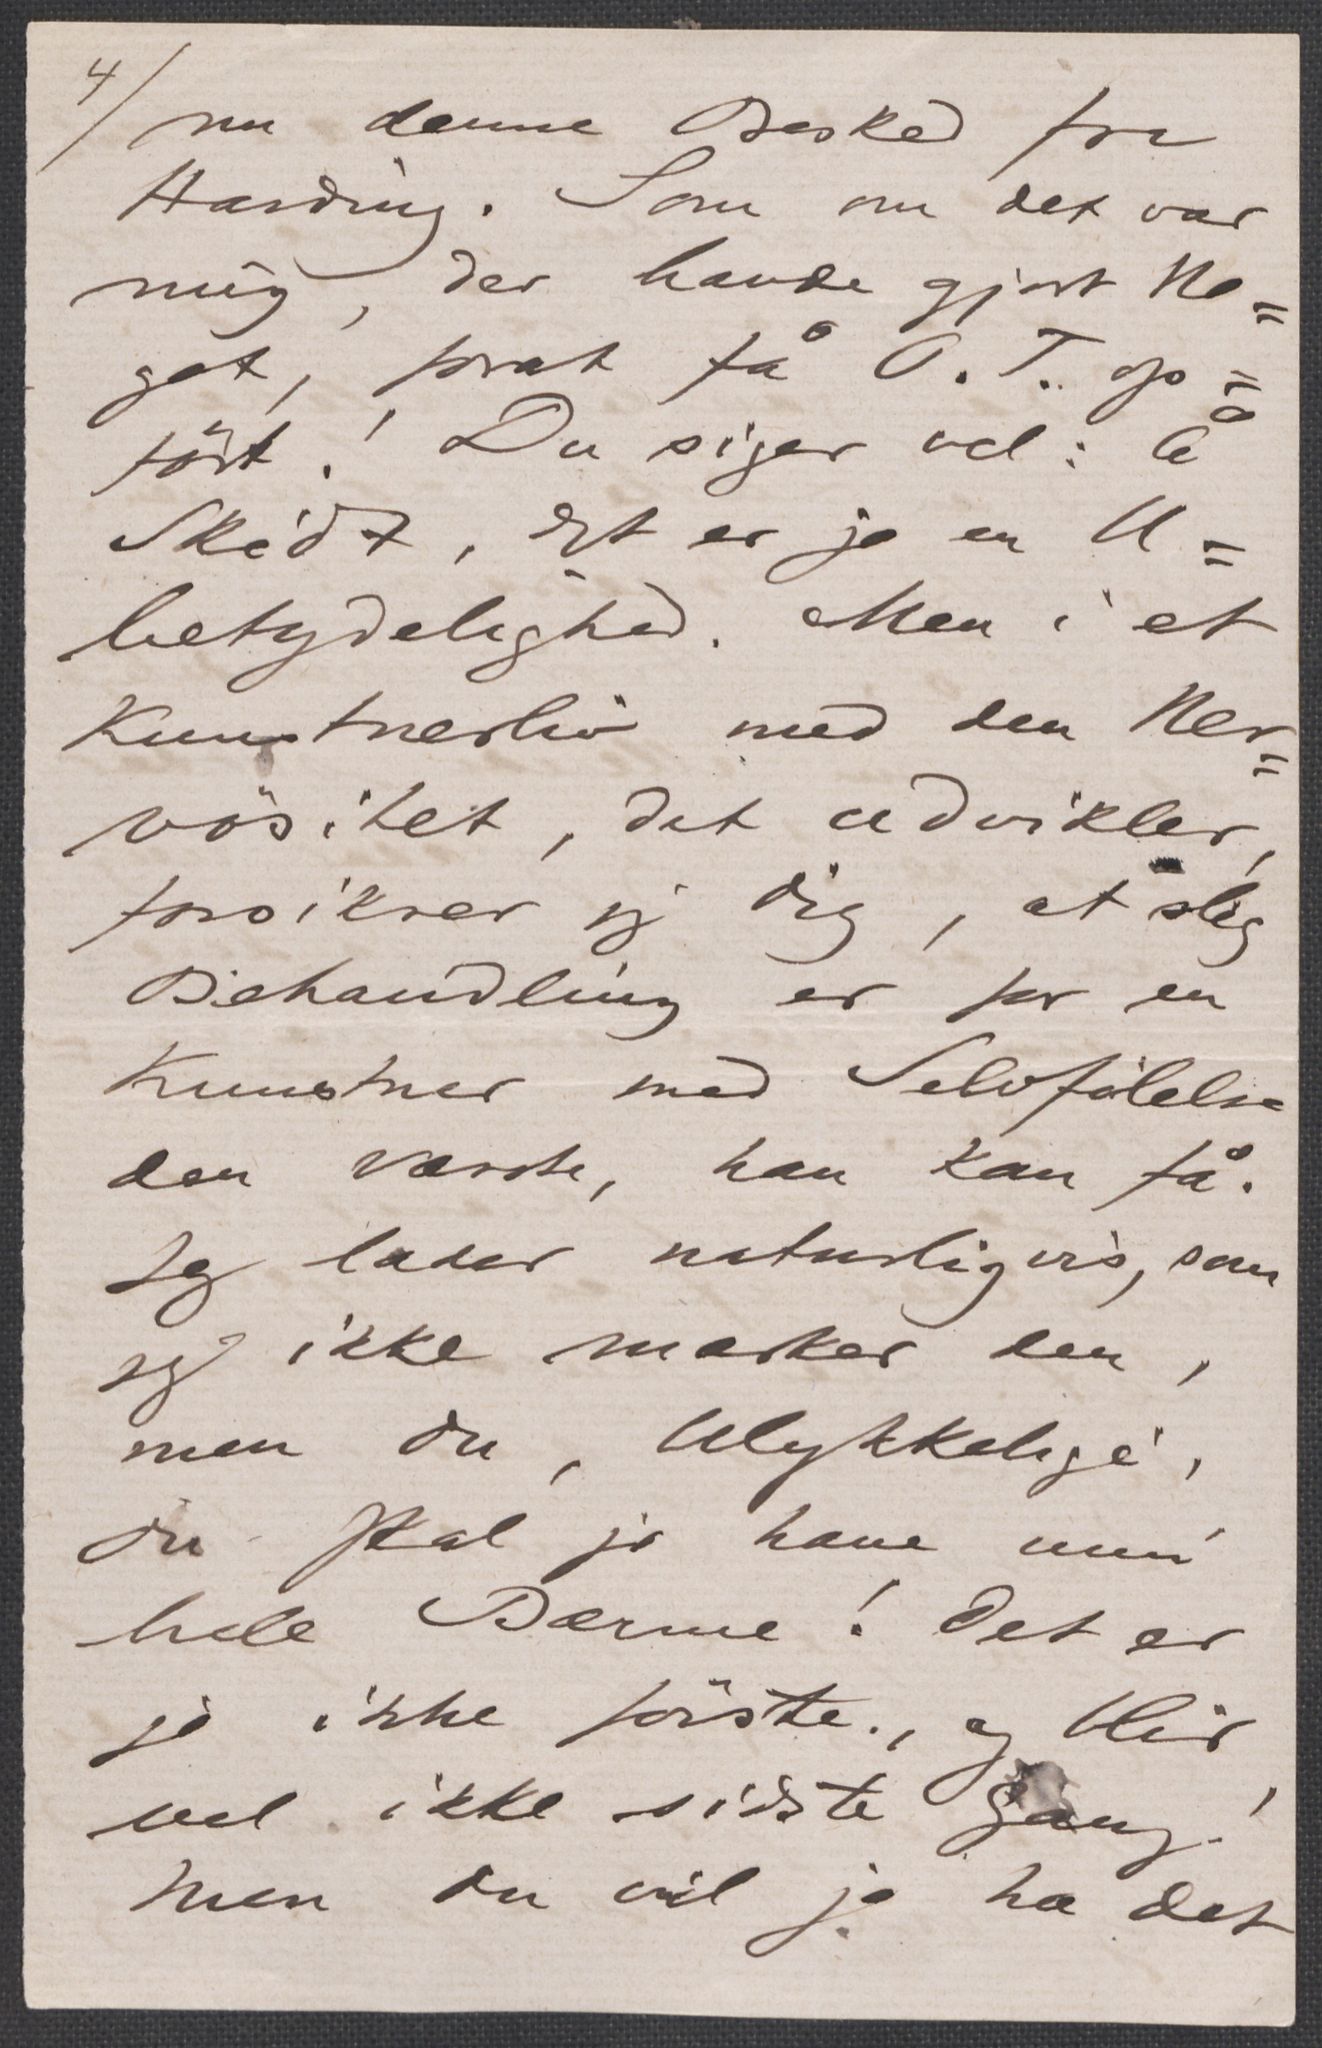 4/
nu denne Besked fra
Harding. Som om det var
mig, der havde gjort No=
get, forat få O. T. op=
ført! Du siger vel: Å
Skidt, det er jo en U=
betydelighed. Men i et
Kunstnerliv med den Ner=
vösitet, det udvikler,
forsikrer jeg dig, at slig
Behandling er for en
Kunstner med Selvfölelse
den værste, han kan få.
Jeg lader naturligvis, som
jeg ikke mærker den,
men du, Ulykkelige,
du skal jo have min
hele Bærme! Det er
jo ikke förste, og blir
vel ikke sidste Gang!
Men du vil jo ha det